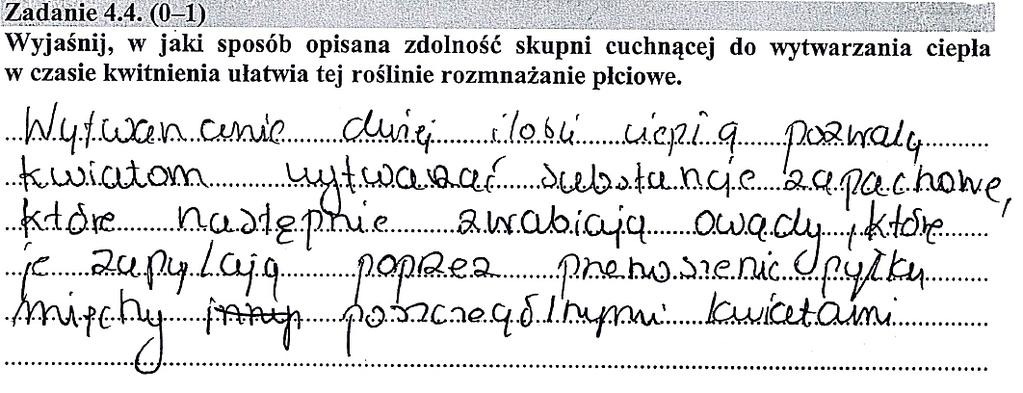 Zadanie 4.4. (0–1)
Wyjaśnij, w jaki sposób opisana zdolność skupni cuchnącej do wytwarzania ciepła
w czasie kwitnienia ułatwia tej roślinie rozmnażanie płciowe.
Wytwarzanie dużej ilości ciepła pozwala
kwiatom wytwarzać substancje zapachowe,
które następnie zwabiają owady, które
je zapylają poprzez przenoszenie pyłku
między innym poszczególnymi kwiatami